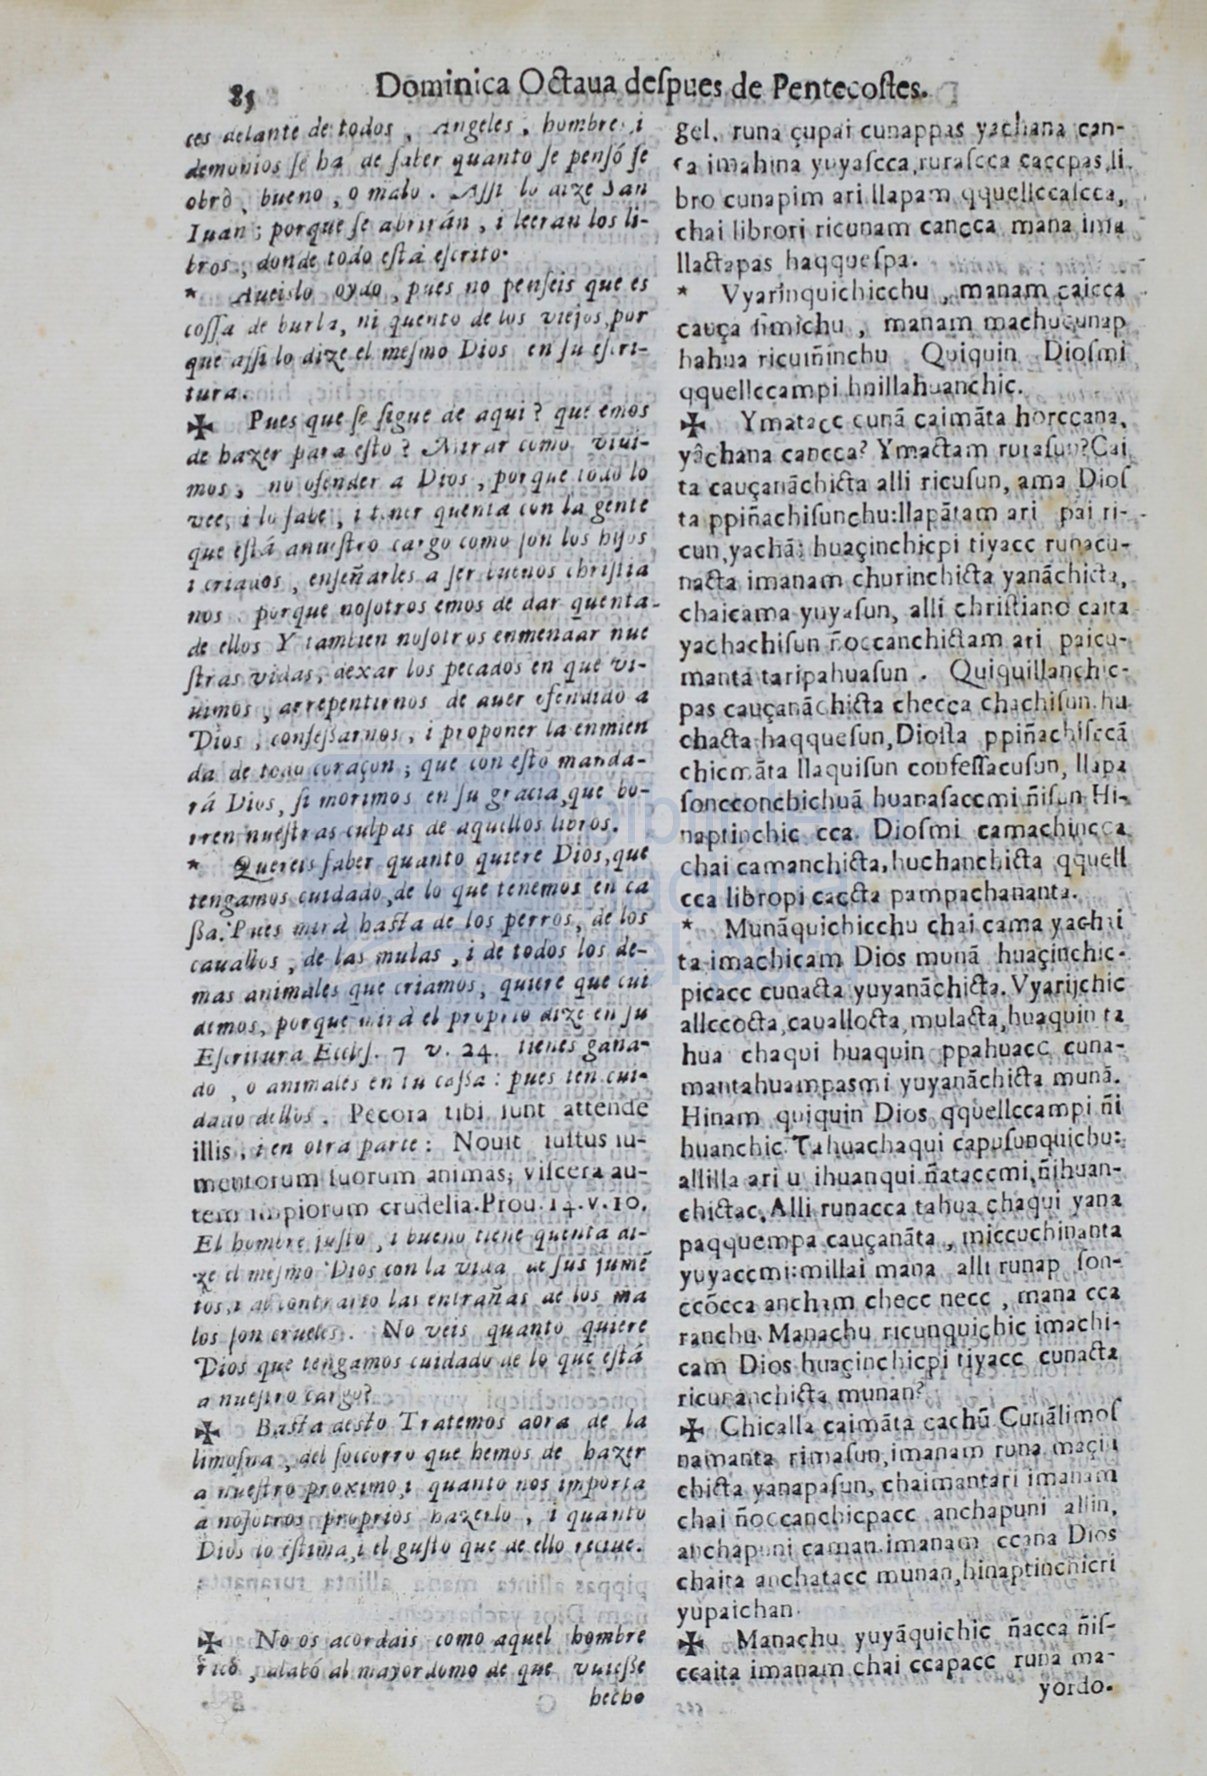 85 Dominica Octaua deſpues de Pentecoſtes.
ces delante de todos, Angeles, hombres, i
demonios ſe ha de ſaber quanto ſe pensó ſe
obrò, bueno, o malo. Aſſi lo dize San
Iuan; porque ſe abrirán, i leeran los li-
bros, donde todo eſtá eſcrito.
* Aueislo oydo, pues no penſeis que es
coſſa de burla, ni quento de los viejos, por
que aſſi lo dize el meſmo Dios en ſu eſcri-
tura.
✠ Pues que ſe ſigue de aqui? que emos
de hazer para eſto? Mirar como viui-
mos, no ofender a Dios, porque todo lo
vee, i lo ſabe, i tener quenta con la gente
que eſtá anueſtro cargo como ſon los hijos,
i criados, enſeñarles a ſer buenos chriſtia
nos porque noſotros emos de dar quenta
de ellos Y tambien noſotros enmendar nue
ſtras vidas, dexar los pecados en que vi-
uimos, arrepentirnos de auer ofendido a
Dios, confeſſarnos, i proponer la enmien
da de todo coraçon; que con eſto manda-
rá Dios, ſi morimos en ſu gracia, que bo-
rren nueſtras culpas de aquellos libros.
* Quereis ſaber quanto quiere Dios, que
tengamos cuidado, de lo que tenemos en ca
ſſa. Pues mirà haſta de los perros, de los
cauallos, de las mulas, i de todos los de-
mas animales que criamos, quiere que cui
demos, porque mirà el proprio dize en ſu
Eſcritura Eccleſ. 7 v. 24. tienes gana-
do, o animales en tu caſſa: pues ten cui-
dado dellos. Pecora tibi ſunt attende
illis, i en otra parte: Nouit iuſtus iu-
mentorum ſuorum animas; viſcera au-
tem impiorum crudelia. Prou. 14. v. 10.
El hombre juſto, i bueno tiene quenta di-
ze el meſmo Dios con la vida de ſus jumẽ
tos, i al contrario las entrañas de los ma
los ſon crueles. No veis quanto quiere
Dios que tengamos cuidado de lo que eſtá
a nueſtro cargo?
✠ Baſta deſto Tratemos aora de la
limoſna, del ſoccorro que hemos de hazer
a nueſtro proximo, i quanto nos importa
a noſotros proprios hazerlo, i quanto
Dios lo eſtima, i el guſto que de ello reciue.
✠ No os acordais como aquel hombre
rico, alabó al mayordomo de que vuieſſe
hecho
gel, runa çupai cunappas yachana can-
ca imahina yuyaſcca, ruraſcca caccpas, li
bro cunapim ari llapam qquellccaſcca,
chai librori ricunam cancca mana ima
llactapas haqqueſpa.
* Vyarinquichicchu, manam caicca
cauça ſimichu, manam machucunap
hahua ricuiñinchu Quiquin Dioſmi
qquellccampi hnillahuanchic.
✠ Ymatacc cunã caimãta horccana,
yâchana cancca? Ymactam ruraſun? Cai
ta cauçanãchicta alli ricuſun, ama Dioſ
ta ppiñachiſunchu: llapãtam ari pai ri-
cun, yachã; huaçinchicpi tiyacc runacu-
nacta imanam churinchicta yanãchicta,
chaicama yuyaſun, alli chriſtiano caita
yachachiſun ñoccanchictam ari paicu-
manta taripahuaſun. Quiquillanchic-
pas cauçanãchicta checca chachiſun hu
chacta haqqueſun, Dioſta ppiñachiſccã
chicmãta llaquiſun confeſſacuſun, llapa
ſonccon̄chichuã huanaſaccmi ñiſun Hi-
naptinchic cca Dioſmi camachincca
chai camanchicta, huchanchicta qquell
cca libropi caccta pampachananta.
* Munãquichicchu chai cama yachai
ta imachicam Dios munã huaçinchic-
picacc cunacta yuyanãchicta. Vyarijchic
allccocta, cauallocta, mulacta, huaquin ta
hua chaqui huaquin ppahuacc cuna-
mantahuampasmi yuyanãchicta munã.
Hinam quiquin Dios qquellccampi ñi
huanchic. Tahuachaqui capuſunquichu:
allilla ari uihuanqui ñataccmi, ñihuan-
chictac, Alli runacca tahua chaqui yana
paqquempa cauçanãta, miccuchinanta
yuyaccmi: millai mana alli runap ſon-
ccõcca ancham checc necc, mana cca
ranchu. Manachu ricunquichic imachi-
cam Dios huaçinchicpi tiyacc cunacta
ricunanchicta munan?
✠ Chicalla caimãta cachũ Cunãlimoſ
namanta rimaſun, imanam runa maçin
chicta yanapaſun, chaimantari imanam
chai ñoccanchicpacc anchapuni allin,
anchapuni caman imanam ccana Dios
chaita anchatacc munan, hinaptinchicri
yupaichan.
✠ Manachu yuyãquichic ñacca ñiſ-
ccaita imanam chai ccapacc runa ma-
yordo.